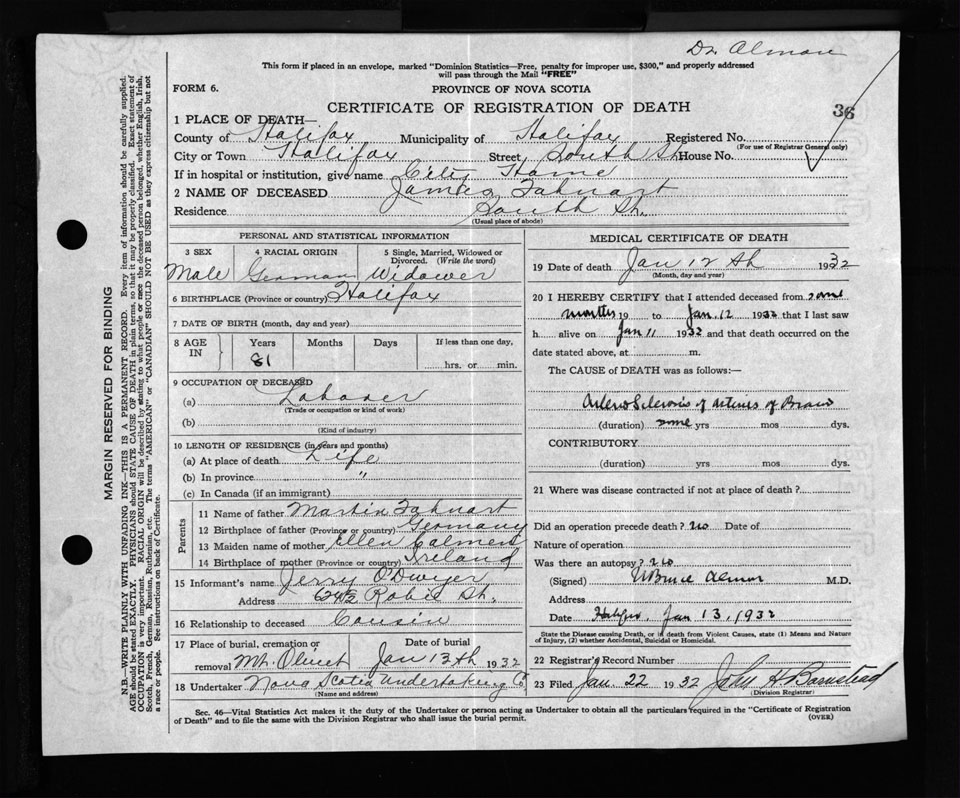 Dr. Almon
This form if placed in an envelope, marked "Dominion Statistics—Free, penalty for improper use, $300," and properly addressed
will pass through the Mail "FREE"
FORM 6.
PROVINCE OF NOVA SCOTIA
36
CERTIFICATE OF REGISTRATION OF DEATH
1 PLACE OF DEATH—
County of Halifax Municipality of Halifax Registered No.
(For use of Registrar General only)
City or Town Halifax Street South St. House No.
If in hospital or institution, give name City Home
2 NAME OF DECEASED James
Residence South St.
(Usual place of abode)
PERSONAL AND STATISTICAL INFORMATION
3 SEX 4 RACIAL ORIGIN 5 Single, Married, Widowed or
Divorced. (Write the word)
Male German Widower
6 BIRTHPLACE (Province or country) Halifax
7 DATE OF BIRTH (month, day and year)
8 AGE IN Years Months Days If less than one day,
81 hrs. or min.
9 OCCUPATION OF DECEASED
(a) Laborer
(Trade or occupation or kind of work)
(b)
(Kind of industry)
10 LENGTH OF RESIDENCE (in years and months)
(a) At place of death Life
(b) In province "
(c) In Canada (if an immigrant)
Parents
11 Name of father Martin
12 Birthplace of father (Province or country) Germany
13 Maiden name of mother Ellen
14 Birthplace of mother (Province or country) Ireland
15 Informant's name Jerry O'Dwyer
Address Robie St.
16 Relationship to deceased Cousin
17 Place of burial, cremation or Date of burial
removal Mt. Olivet Jan 13th 1932
18 Undertaker Nova Scotia Undertaking Co.
(Name and address)
MEDICAL CERTIFICATE OF DEATH
19 Date of death Jan 12th 1932
(Month, day and year)
20 I HEREBY CERTIFY that I attended deceased from some
months 19 to Jan. 12 1932 that I last saw
h alive on Jan 11 1932 and that death occurred on the
date stated above, at m.
The CAUSE of DEATH was as follows:—
Arterio Sclerosis of arteries of Brain
(duration) some yrs mos dys.
CONTRIBUTORY
(duration) yrs mos dys.
21 Where was disease contracted if not at place of death?
Did an operation precede death? no Date of
Nature of operation
Was there an autopsy? no
(Signed) W Bruce Almon M.D.
Address
Date Halifax, Jan 13, 1932
State the Disease causing Death, or in death from Violent Causes, state (1) Means and Nature
of Injury, (2) whether Accidental, Suicidal or Homicidal.
22 Registrar's Record Number
23 Filed Jan. 22 1932 John H Barnstead
(Division Registrar)
Sec. 46—Vital Statistics Act makes it the duty of the Undertaker or person acting as Undertaker to obtain all the particulars required in the "Certificate of Registration
of Death" and to file the same with the Division Registrar who shall issue the burial permit.
(OVER)
MARGIN RESERVED FOR BINDING
N.B.—WRITE PLAINLY WITH UNFADING INK—THIS IS A PERMANENT RECORD. Every item of information should be carefully supplied.
AGE should be stated EXACTLY. PHYSICIANS should STATE CAUSE OF DEATH in plain terms, so that it may be properly classified. Exact statement of
OCCUPATION is very important. RACIAL ORIGIN will be described by stating to what people or race the deceased person belonged, whether English, Irish,
Scotch, French, German, Russian, Ruthenian, etc. The terms "AMERICAN" or "CANADIAN" SHOULD NOT BE USED as they express citizenship but not
a race or people. See instructions on back of Certificate.